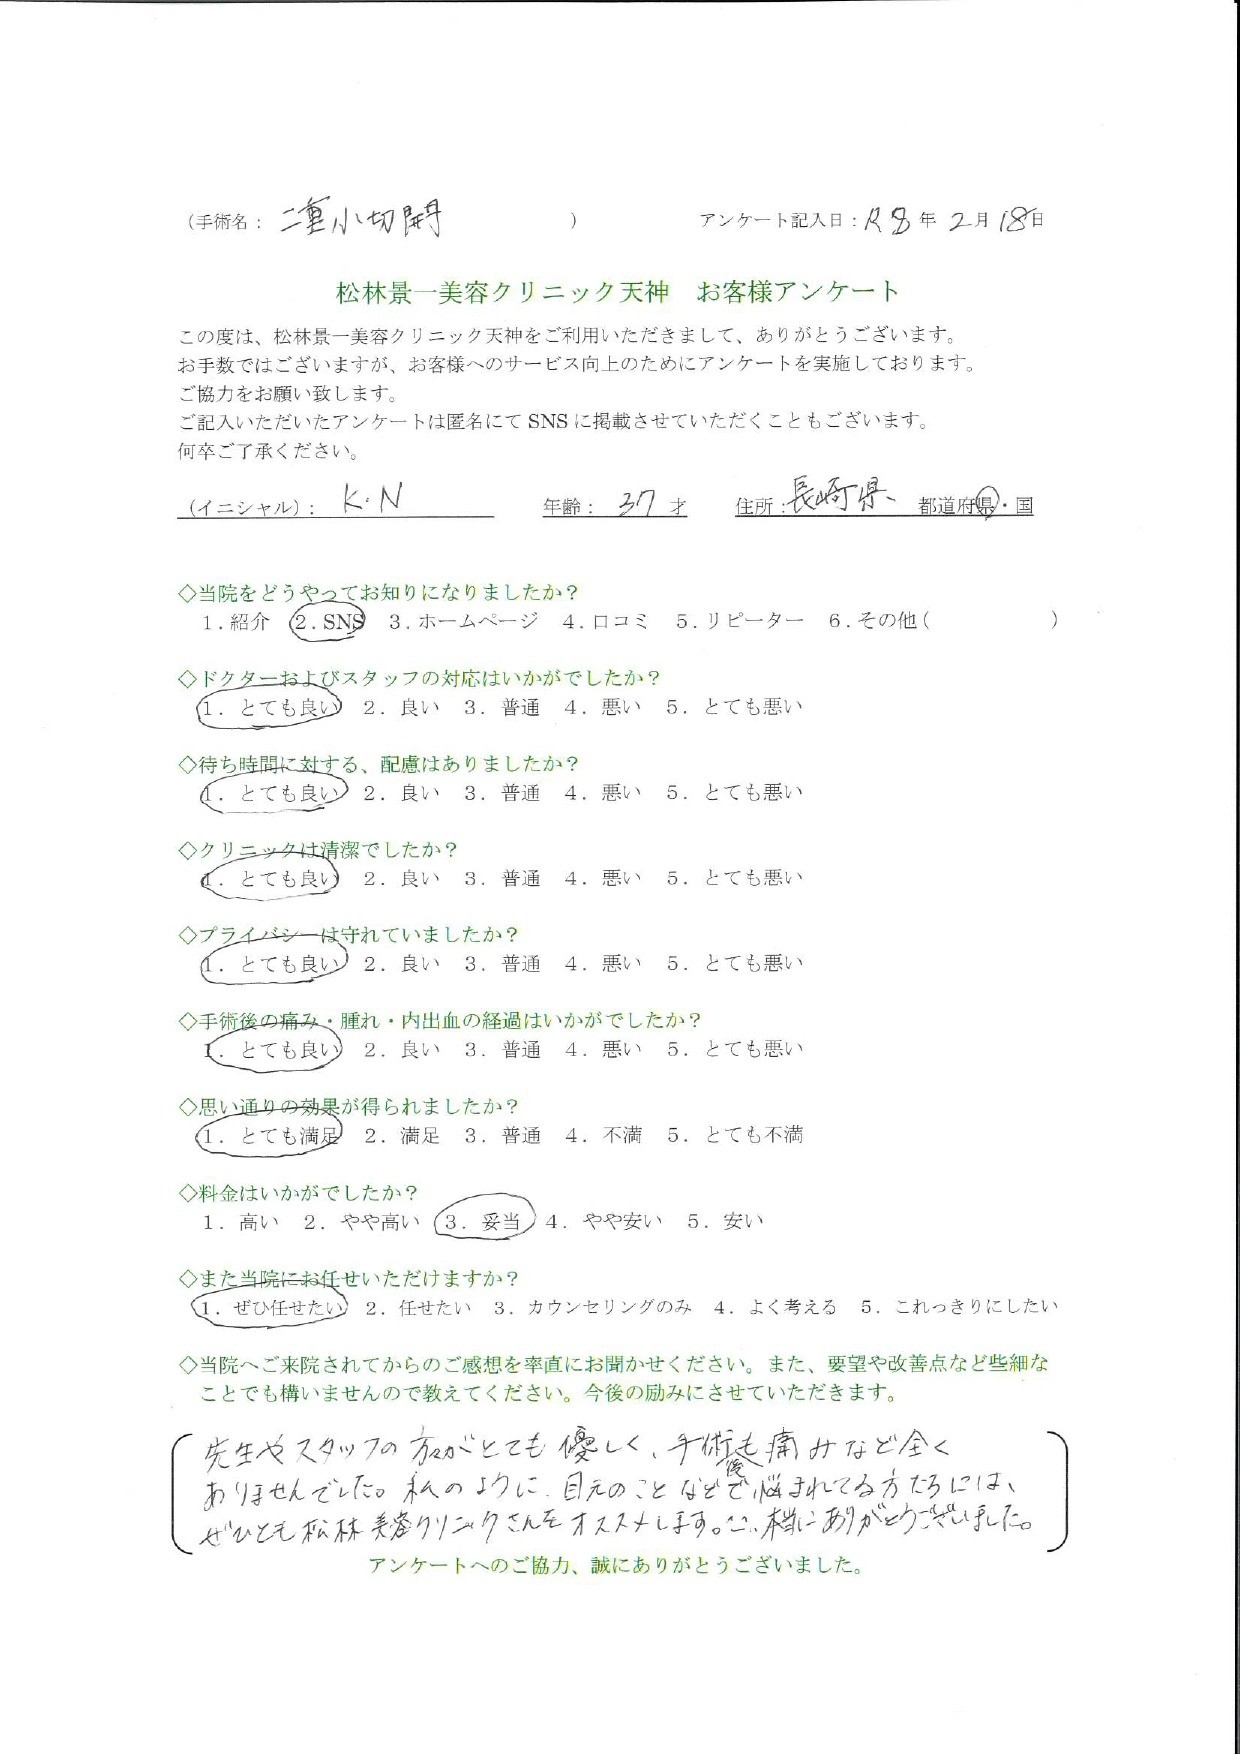 （手術名：二重小切開　）　アンケート記入日：R8年2月18日
松林景一美容クリニック天神　お客様アンケート
この度は、松林景一美容クリニック天神をご利用いただきまして、ありがとうございます。
お手数ではございますが、お客様へのサービス向上のためにアンケートを実施しております。
ご協力をお願い致します。
ご記入いただいたアンケートは匿名にて SNS に掲載させていただくこともございます。
何卒ご了承ください。
（イニシャル）：K.N　年齢：37才　住所：長崎県　都道府県・国
◇当院をどうやってお知りになりましたか？
1.紹介　2.SNS　3.ホームページ　4.口コミ　5.リピーター　6.その他（　）
◇ドクターおよびスタッフの対応はいかがでしたか？
1．とても良い　2．良い　3．普通　4．悪い　5．とても悪い
◇待ち時間に対する、配慮はありましたか？
1．とても良い　2．良い　3．普通　4．悪い　5．とても悪い
◇クリニックは清潔でしたか？
1．とても良い　2．良い　3．普通　4．悪い　5．とても悪い
◇プライバシーは守れていましたか？
1．とても良い　2．良い　3．普通　4．悪い　5．とても悪い
◇手術後の痛み・腫れ・内出血の経過はいかがでしたか？
1．とても良い　2．良い　3．普通　4．悪い　5．とても悪い
◇思い通りの効果が得られましたか？
1．とても満足　2．満足　3．普通　4．不満　5．とても不満
◇料金はいかがでしたか？
1．高い　2．やや高い　3．妥当　4．やや安い　5．安い
◇また当院にお任せいただけますか？
1．ぜひ任せたい　2．任せたい　3．カウンセリングのみ　4．よく考える　5．これっきりにしたい
◇当院へご来院されてからのご感想を率直にお聞かせください。また、要望や改善点など些細な
ことでも構いませんので教えてください。今後の励みにさせていただきます。
先生やスタッフの方々がとても優しく、手術後も痛みなど全く
ありませんでした。私のように、目元のことなどで悩まれてる方たちには、
ぜひとも松林美容クリニックさんをオススメします。^^ 本当にありがとうございました。
アンケートへのご協力、誠にありがとうございました。